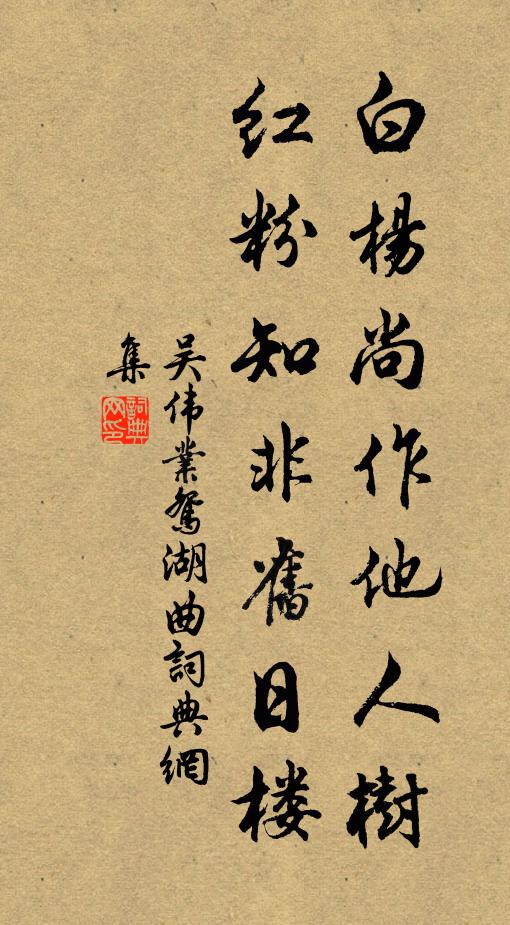 白楊尚作他人樹
紅粉知非舊日楼
吴伟業鴛湖曲詞典網
集
詞典網印